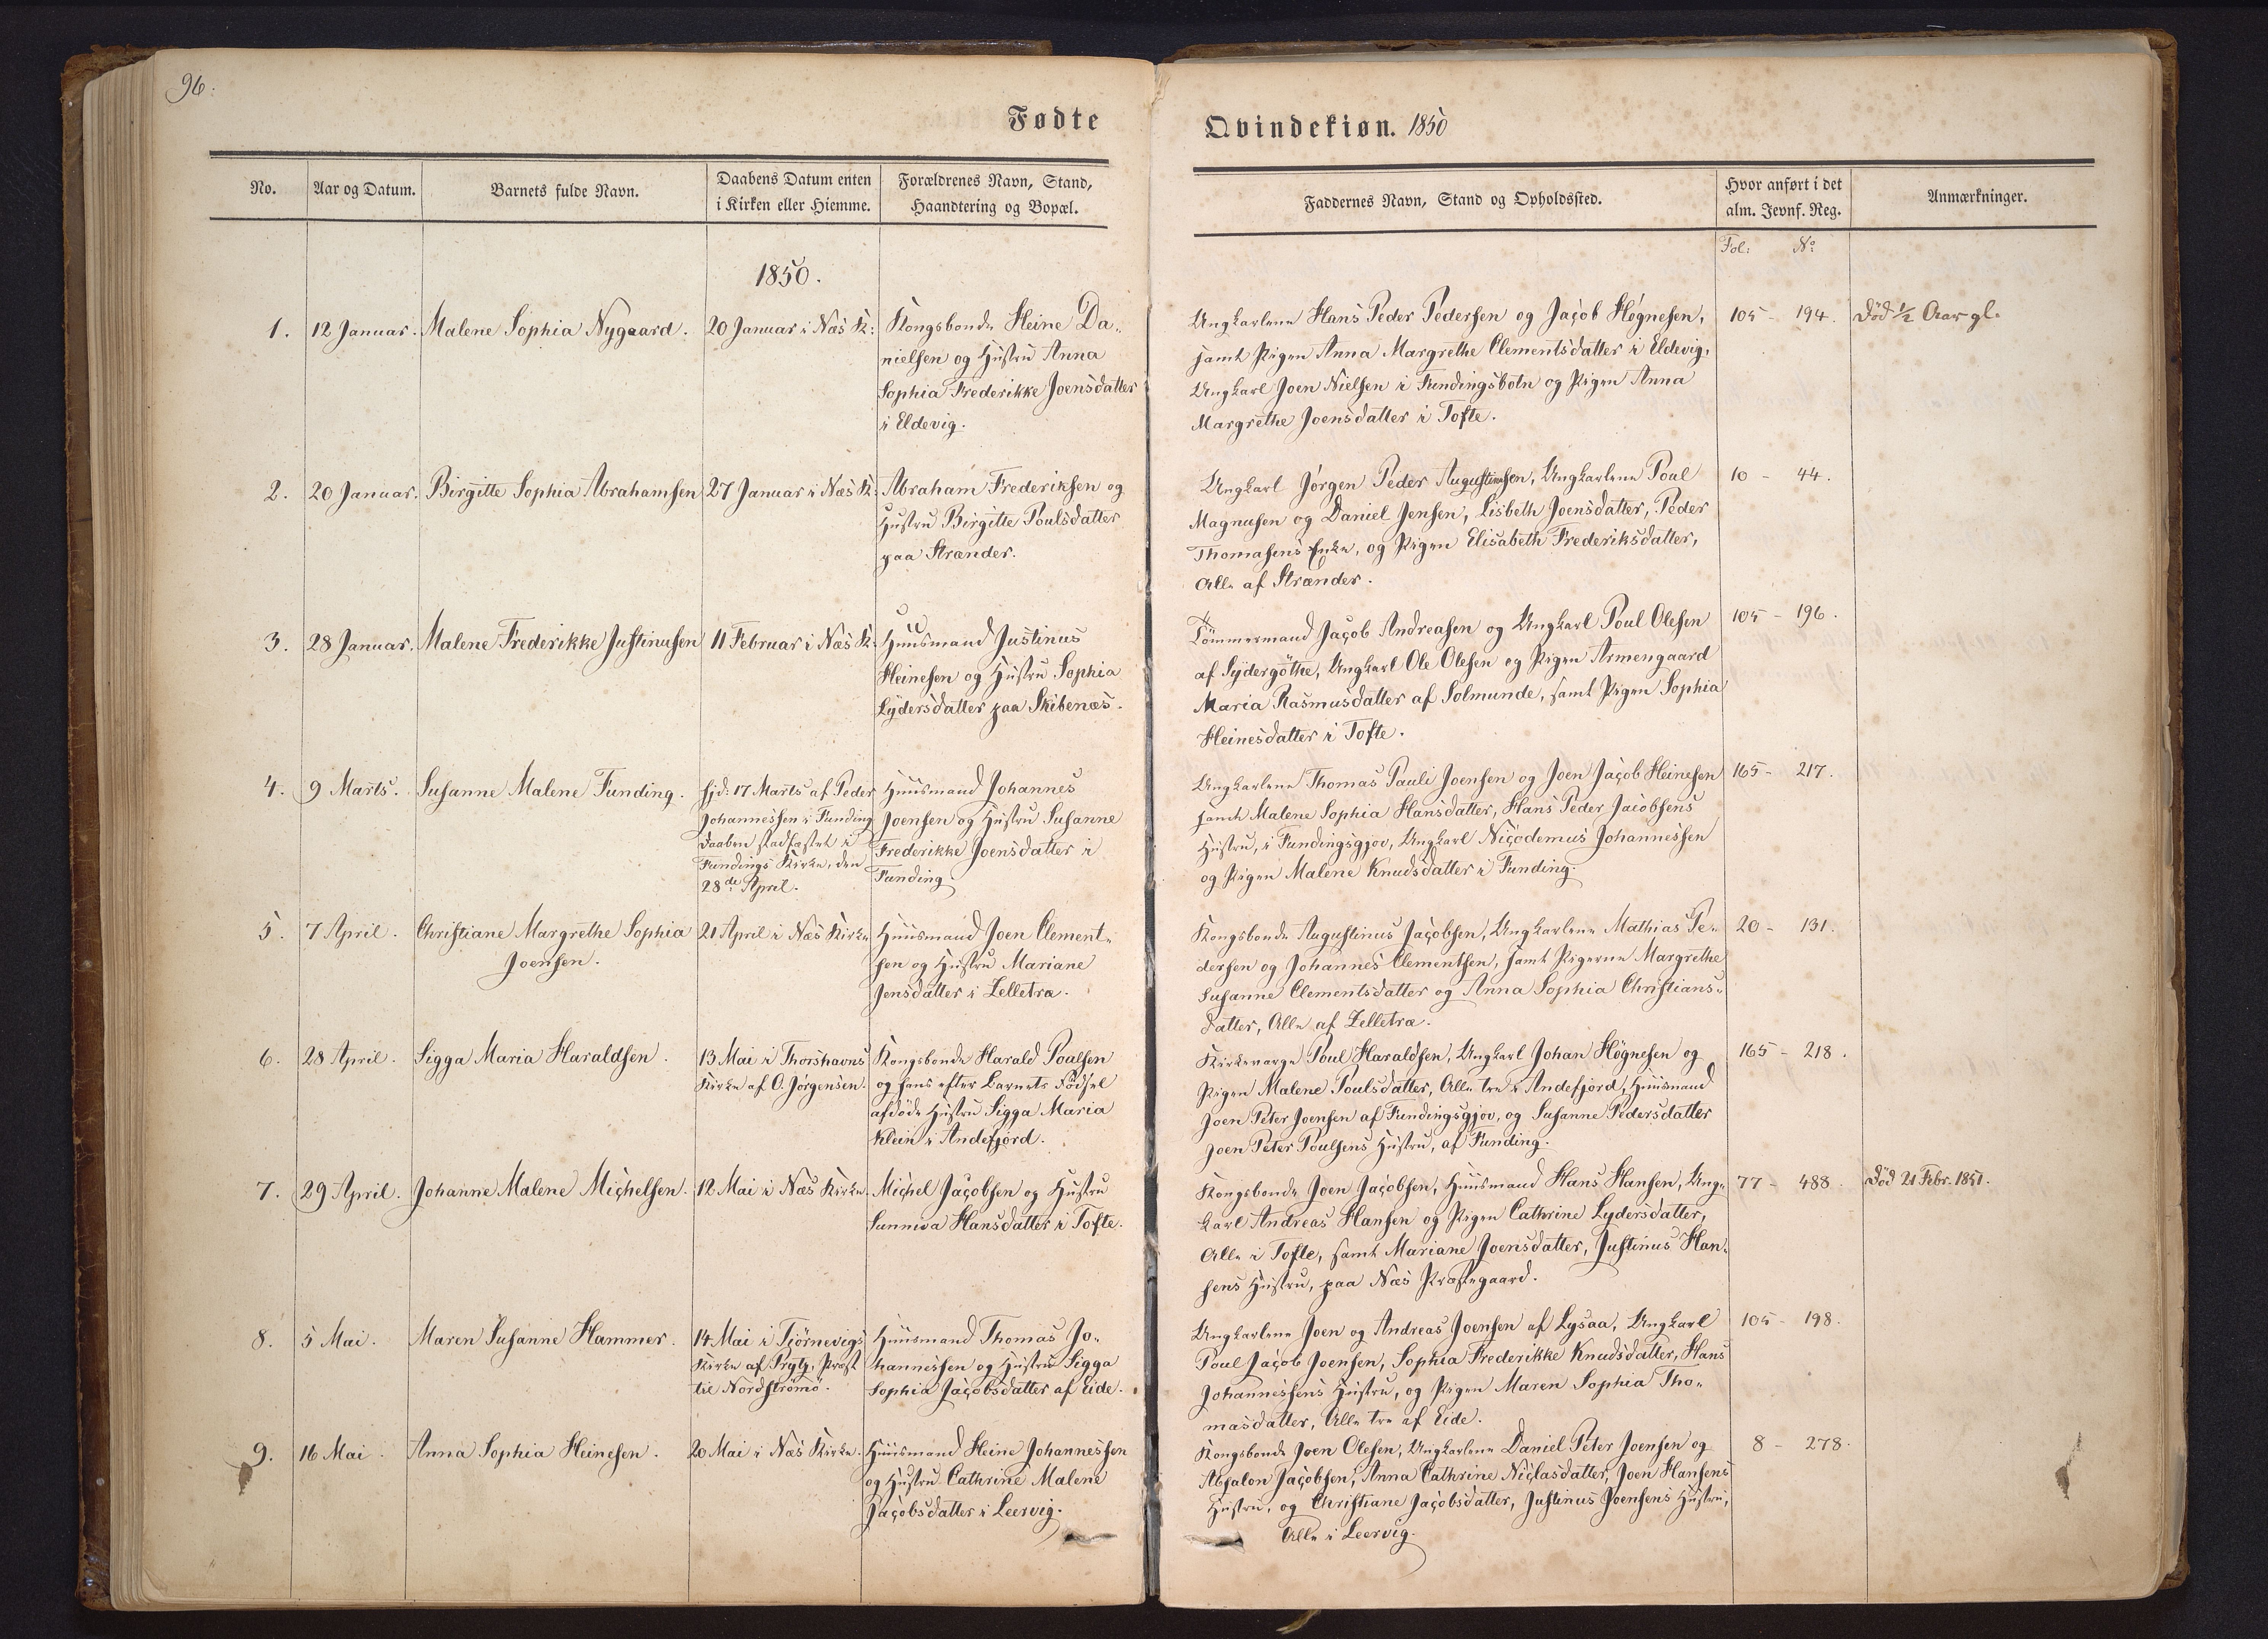 96.
Fødte
No.
Aar og Datum.
Barnets fulde Navn.
Daabens Datum enten
i Kirken eller Hiemme.
Forældrenes Navn, Stand,
Haandtering og Bopæl.
1850.
1.
12 Januar.
Malene Sophia Nygaard.
20 Januar i Næs K:
Kongsbonde Heine Da-
nielsen og Hustru Anna
Sophia Frederikke Joensdatter
i Eldevig.
2.
20 Januar.
Birgitte Sophia Abrahamsen
27 Januar i Næs K:
Abraham Frederiksen og
Hustru Birgitte Poulsdatter
paa Strænder.
3.
28 Januar.
Malene Frederikke Justinusen
11 Februar i Næs K:
Huusmand Justinus
Heinesen og Hustru Sophia
Lydersdatter paa Skibenæs.
4.
9 Marts.
Susanne Malene Funding.
Hjd: 17 Marts af Peder
Johannessen i Funding
Daaben stadfæstet i
Fundings Kirke, den
28de April.
Huusmand Johannes
Joensen og Hustru Susanne
Frederikke Joensdatter i
Funding
5.
7 April.
Christiane Margrethe Sophia
Joensen.
21 April i Næs Kirke
Huusmand Joen Clement-
sen og Hustru Mariane
Jensdatter i Zelletræ.
6.
28 April.
Sigga Maria Haraldsen.
13 Mai i Thorshavns
Kirke af O. Jørgensen.
Kongsbonde Harald Poulsen
og hans efter Barnets Fødsel
afdøde Hustru Sigga Maria
Klein i Andefjord.
7.
29 April.
Johanne Malene Michelsen.
12 Mai i Næs Kirke.
Michel Jacobsen og Hustru
Sunniva Hansdatter i Tofte.
8.
5 Mai.
Maren Susanne Hammer.
14 Mai i Tjørnevigs
Kirke af Prytz, Præst
til Nordstrømø.
Huusmand Thomas Jo-
hannessen og Hustru Sigga
Sophia Jacobsdatter af Eide.
9.
16 Mai.
Anna Sophia Heinesen.
20 Mai i Næs Kirke.
Huusmand Heine Johannessen
og Hustru Cathrine Malene
Jacobsdatter i Leervig.
Qvindekiøn. 1850
Faddernes Navn, Stand og Opholdssted.
Hvor anført i det
alm. Jevnf. Reg.
Anmærkninger.
Fol: No
Ungkarlene Hans Peder Pedersen og Jacob Høgnesen,
samt Pigen Anna Margrethe Clementsdatter i Eldevig,
Ungkarl Joen Nielsen i Fundingsbotn og Pigen Anna
Margrethe Joensdatter i Tofte.
105 - 194.
Død 1/2 Aar gl.
Ungkarl Jørgen Peder Augustinsen, Ungkarlene Poul
Magnusen og Daniel Jensen, Lisbeth Joensdatter, Peder
Thomasens Enke, og Pigen Elisabeth Frederiksdatter,
Alle af Strænder.
10 - 44.
Tømmermand Jacob Andreasen og Ungkarl Poul Olesen
af Sydergøthe, Ungkarl Ole Olesen og Pigen Armengaard
Maria Rasmusdatter af Solmunde, samt Pigen Sophia
Heinesdatter i Tofte.
105 - 196.
Ungkarlene Thomas Pauli Joensen og Joen Jacob Heinesen
samt Malene Sophia Hansdatter, Hans Peder Jacobsens
Hustru, i Fundingsgjov, Ungkarl Nicodemus Johannessen
og Pigen Malene Knudsdatter i Funding.
165 - 217.
Kongsbonde Augustinus Jacobsen, Ungkarlene Mathias Pe-
dersen og Johannes Clementsen, samt Pigerne Margrethe
Susanne Clementsdatter og Anna Sophia Christians-
datter, Alle af Zelletræ.
20 - 131.
Kirkeværge Poul Haraldsen, Ungkarl Johan Høgnesen og
Pigen Malene Poulsdatter, Alle tre i Andefjord, Huusmand
Joen Peter Joensen af Fundingsgjov, og Susanne Pedersdatter
Joen Peter Poulsens Hustru, af Funding.
165 - 218.
Kongsbonde Joen Jacobsen, Huusmand Hans Hansen, Ung-
karl Andreas Hansen og Pigen Cathrine Lydersdatter,
Alle i Tofte, samt Mariane Joensdatter, Justinus Han-
sens Hustru, paa Næs Præstegaard.
77 - 488.
Død 21 Febr. 1851.
Ungkarlene Joen og Andreas Joensen af Lysaa, Ungkarl
Poul Jacob Joensen, Sophia Frederikke Knudsdatter, Hans
Johannessens Hustru, og Pigen Maren Sophia Tho-
masdatter, Alle tre af Eide.
105 - 198.
Kongsbonde Joen Olesen, Ungkarlene Daniel Peter Joensen og
Absalon Jacobsen, Anna Cathrine Niclasdatter, Joen Hansens
Hustru, og Christiane Jacobsdatter, Justinus Joensens Hustru,
Alle i Leervig.
8 - 278.